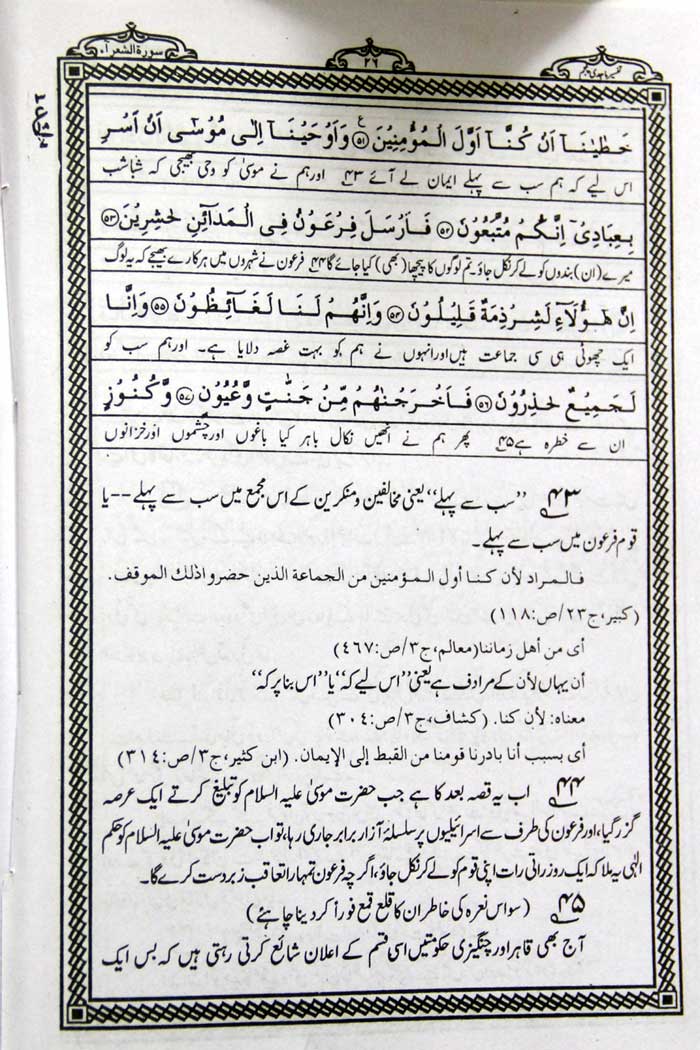 تفسیر ماجدی پنجم
۲۶
سورة الشعرآء
خَطٰيٰنَآ اَنْ كُنَّآ اَوَّلَ الْمُؤْمِنِيْنَ ﴿۵۱﴾ ع وَاَوْحَيْنَآ اِلٰى مُوْسٰٓى اَنْ اَسْرِ
اس لیے کہ ہم سب سے پہلے ایمان لے آئے ۴۳ اور ہم نے موسیٰ کو وحی بھیجی کہ شباشب
بِعِبَادِيْٓ اِنَّكُمْ مُّتَّبَعُوْنَ ﴿۵۲﴾ فَاَرْسَلَ فِرْعَوْنُ فِى الْمَدَآئِنِ حٰشِرِيْنَ ﴿۵۳﴾
میرے (ان) بندوں کو لے کر نکل جاؤ۔ تم لوگوں کا پیچھا (بھی) کیا جائے گا ۴۴ فرعون نے شہروں میں ہرکارے بھیجے کہ یہ لوگ
اِنَّ هٰٓؤُلَآءِ لَشِرْذِمَةٌ قَلِيْلُوْنَ ﴿۵۴﴾ وَاِنَّهُمْ لَنَا لَغَآئِظُوْنَ ﴿۵۵﴾ وَاِنَّا
ایک چھوٹی ہی سی جماعت ہیں اور انہوں نے ہم کو بہت غصہ دلایا ہے۔ اور ہم سب کو
لَجَمِيْعٌ حٰذِرُوْنَ ﴿۵۶﴾ فَاَخْرَجْنٰهُمْ مِّنْ جَنّٰتٍ وَّعُيُوْنٍ ﴿۵۷﴾ وَّكُنُوْزٍ
ان سے خطرہ ہے ۴۵ پھر ہم نے انھیں نکال باہر کیا باغوں اور چشموں اور خزانوں
۴۳ ”سب سے پہلے“ یعنی مخالفین و منکرین کے اس مجمع میں سب سے پہلے -- یا
قوم فرعون میں سب سے پہلے۔
فالمراد لأن كنا أول المؤمنين من الجماعة الذين حضروا ذلك الموقف.
(کبیر، ج۲۳/ص:۱۱۸)
أى من أهل زماننا (معالم، ج۳/ص:۴۶۷)
أن یہاں لأن کے مرادف ہے یعنی ”اس لیے کہ“ یا ”اس بنا پر کہ“
معناه: لأن كنا. (کشاف، ج۳/ص:۳۰۴)
أى بسبب أنا بادرنا قومنا من القبط إلى الإيمان. (ابن کثیر، ج۳/ص:۳۱۴)
۴۴ اب یہ قصہ بعد کا ہے جب حضرت موسیٰ علیہ السلام کو تبلیغ کرتے ایک عرصہ
گزر گیا، اور فرعون کی طرف سے اسرائیلیوں پر سلسلۂ آزار برابر جاری رہا، تو اب حضرت موسیٰ علیہ السلام کو حکم
الٰہی یہ ملا کہ ایک روز راتی رات اپنی قوم کو لے کر نکل جاؤ، اگر چہ فرعون تمہارا تعاقب زبردست کرے گا۔
۴۵ (سو اس نعرہ کی خاطر ان کا قلع قمع فوراً کر دینا چاہئے)
آج بھی قاہر اور چنگیزی حکومتیں اسی قسم کے اعلان شائع کرتی رہتی ہیں کہ بس ایک